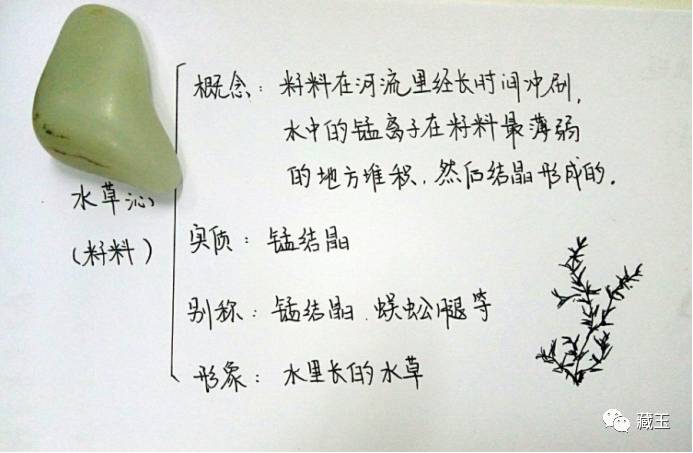 水草沁
(籽料)
概念：籽料在河流里经长时间冲刷，
水中的锰离子在籽料最薄弱
的地方堆积，然后结晶形成的。
实质：锰结晶
别称：锰结晶、蜈蚣腿等
形象：水里长的水草
藏玉